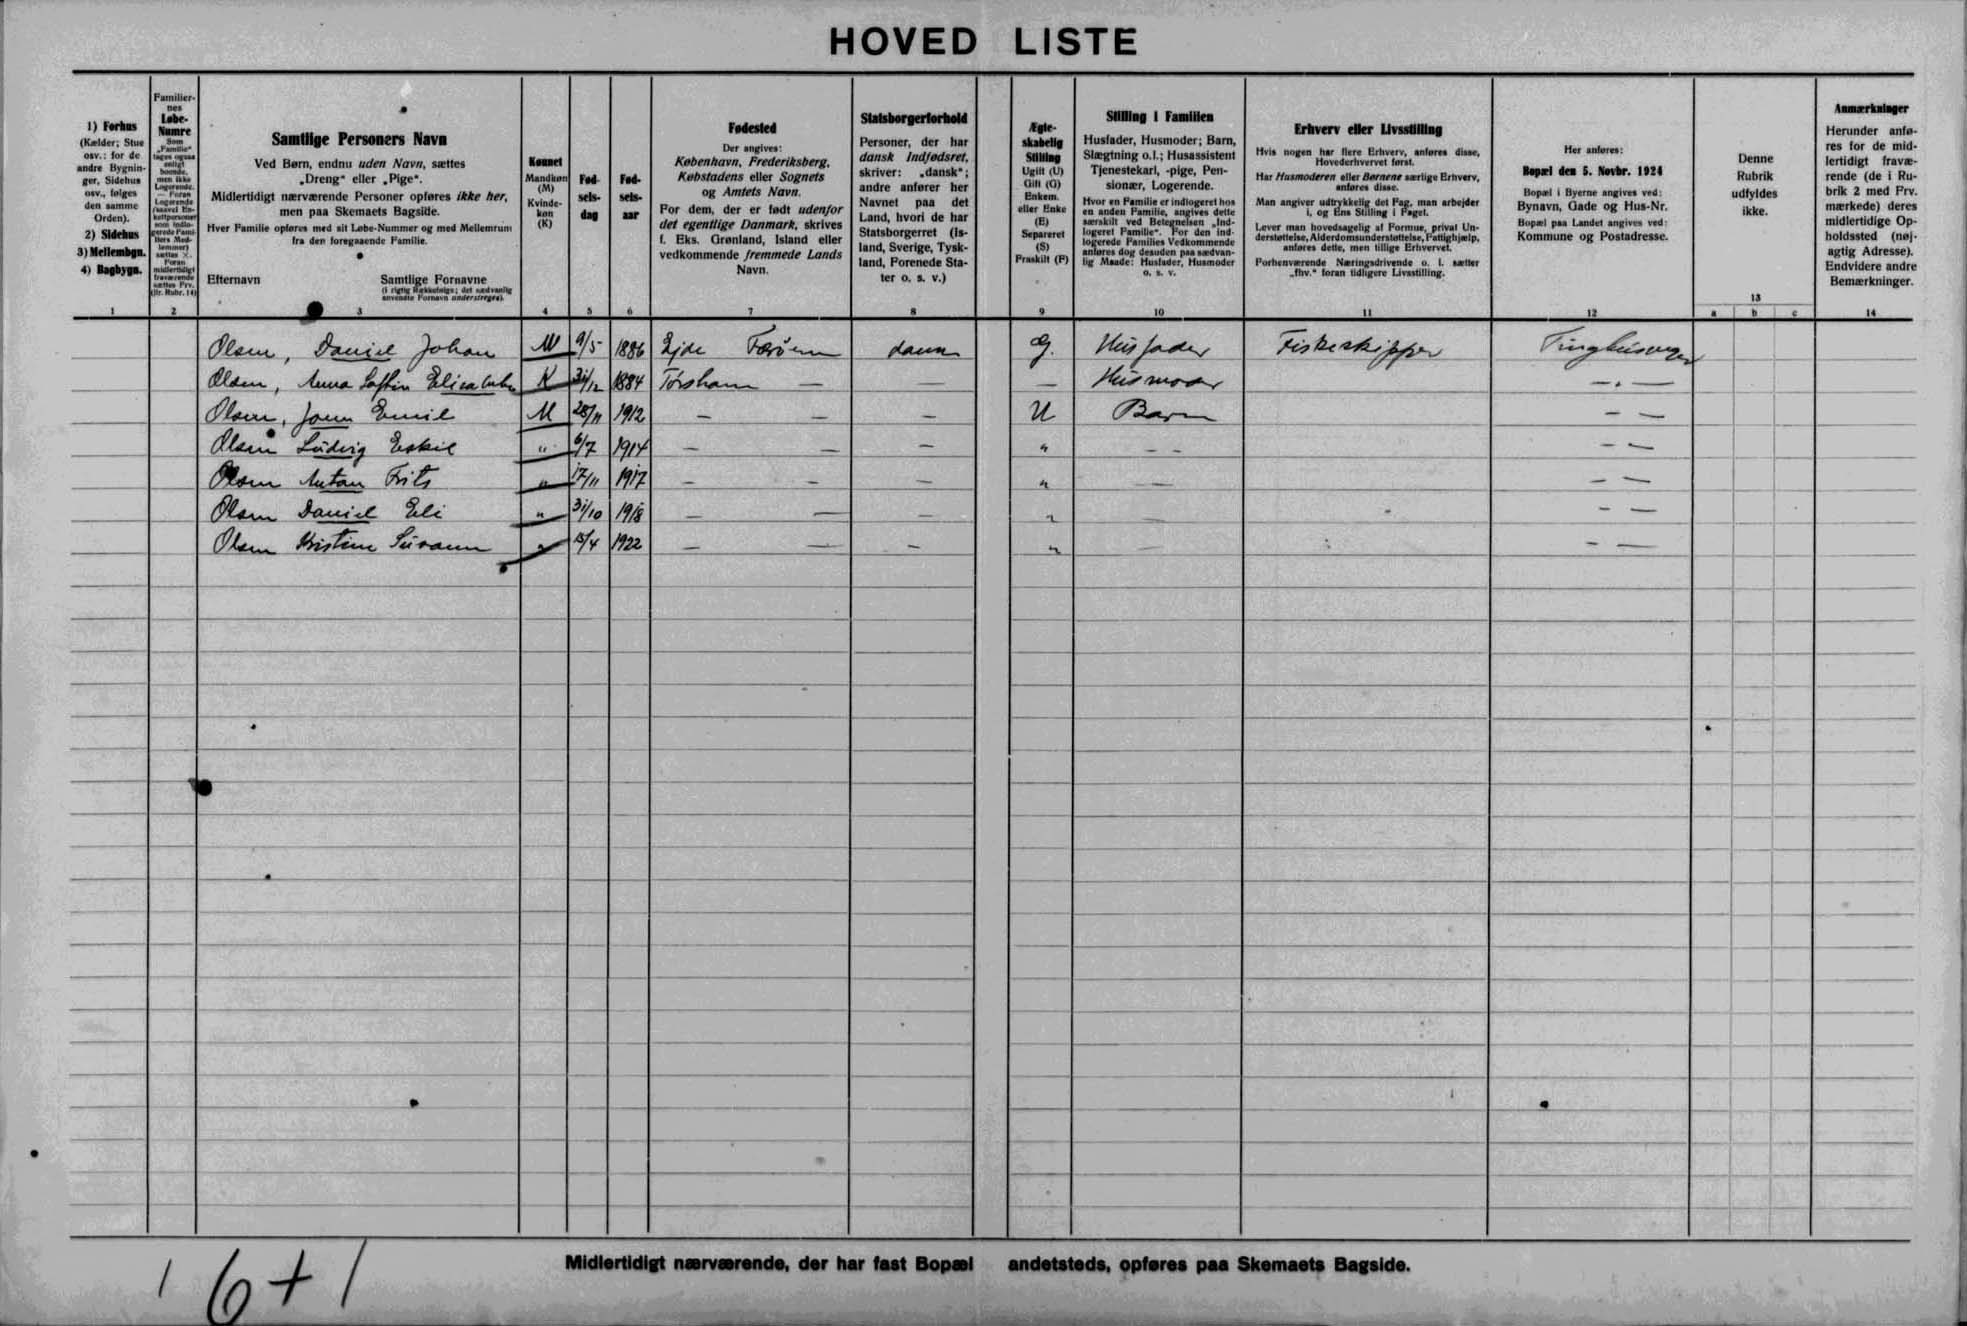 HOVED LISTE
1) Forhus
(Kælder; Stue
osv.: for de
andre Bygnin-
ger, Sidehus
osv., følges
den samme
Orden).
2) Sidehus
3) Mellembgn.
4) Bagbygn.
1
Familier-
nes
Løbe-
Numre
Som
„Familie“
tages ogsaa
enligt
boende,
men ikke
Logerende.
— Foran
Logerende
(saavel En-
keltpersoner
som indlo-
gerede Fami-
liers Med-
lemmer)
sættes ×.
Foran
midlertidigt
fraværende
sættes Frv.
(jfr. Rubr. 14)
2
Samtlige Personers Navn
Ved Børn, endnu uden Navn, sættes
„Dreng“ eller „Pige“.
Midlertidigt nærværende Personer opføres ikke her,
men paa Skemaets Bagside.
Hver Familie opføres med sit Løbe-Nummer og med Mellemrum
fra den foregaaende Familie.
Efternavn Samtlige Fornavne
(i rigtig Rækkefølge; det sædvanlig
anvendte Fornavn understreges).
3
Kønnet
Mandkøn
(M)
Kvinde-
køn
(K)
4
Fød-
sels-
dag
5
Fød-
sels-
aar
6
Fødested
Der angives:
København, Frederiksberg,
Købstadens eller Sognets
og Amtets Navn.
For dem, der er født udenfor
det egentlige Danmark, skrives
f. Eks. Grønland, Island eller
vedkommende fremmede Lands
Navn.
7
Statsborgerforhold
Personer, der har
dansk Indfødsret,
skriver: „dansk“;
andre anfører her
Navnet paa det
Land, hvori de har
Statsborgerret (Is-
land, Sverige, Tysk-
land, Forenede Sta-
ter o. s. v.)
8
Ægte-
skabelig
Stilling
Ugift (U)
Gift (G)
Enkem.
eller Enke
(E)
Separeret
(S)
Fraskilt (F)
9
Stilling i Familien
Husfader, Husmoder; Barn,
Slægtning o.l.; Husassistent
Tjenestekarl, -pige, Pen-
sionær, Logerende.
Hvor en Familie er indlogeret hos
en anden Familie, angives dette
særskilt ved Betegnelsen „Ind-
logeret Familie“. For den ind-
logerede Families Vedkommende
anføres dog desuden paa sædvan-
lig Maade: Husfader, Husmoder
o. s. v.
10
Erhverv eller Livsstilling
Hvis nogen har flere Erhverv, anføres disse,
Hovederhvervet først.
Har Husmoderen eller Børnene særlige Erhverv,
anføres disse.
Man angiver udtrykkelig det Fag, man arbejder
i, og Ens Stilling i Faget.
Lever man hovedsagelig af Formue, privat Un-
derstøttelse, Alderdomsunderstøttelse, Fattighjælp,
anføres dette, men tillige Erhvervet.
Forhenværende Næringsdrivende o. l. sætter
„fhv.“ foran tidligere Livsstilling.
11
Her anføres:
Bopæl den 5. Novbr. 1924
Bopæl i Byerne angives ved:
Bynavn, Gade og Hus-Nr.
Bopæl paa Landet angives ved:
Kommune og Postadresse.
12
Denne
Rubrik
udfyldes
ikke.
13
a b c
Anmærkninger
Herunder anfø-
res for de mid-
lertidigt fravæ-
rende (de i Ru-
brik 2 med Frv.
mærkede) deres
midlertidige Op-
holdssted (nøj-
agtig Adresse).
Endvidere andre
Bemærkninger.
14
Olsen, Daniel Johan M 9/5 1886 Ejde Færøerne dansk G. Husfader Fiskeskipper Tinghusvegur
Olsen, Anna K 31/12 1884 Tórshavn — — — Husmoder — " —
Olsen, Emil M 28/11 1912 — — — U Barn — —
Olsen Ludvig Eskil " 6/7 1914 — — — " — — — —
Olsen Anton Frits " 17/11 1917 — — — " — — —
Olsen Daniel Eli " 31/10 1918 — — — " — — —
Olsen Kristine Susanne " 15/4 1922 — — — " — — —
Midlertidigt nærværende, der har fast Bopæl andetsteds, opføres paa Skemaets Bagside.
1 6+1